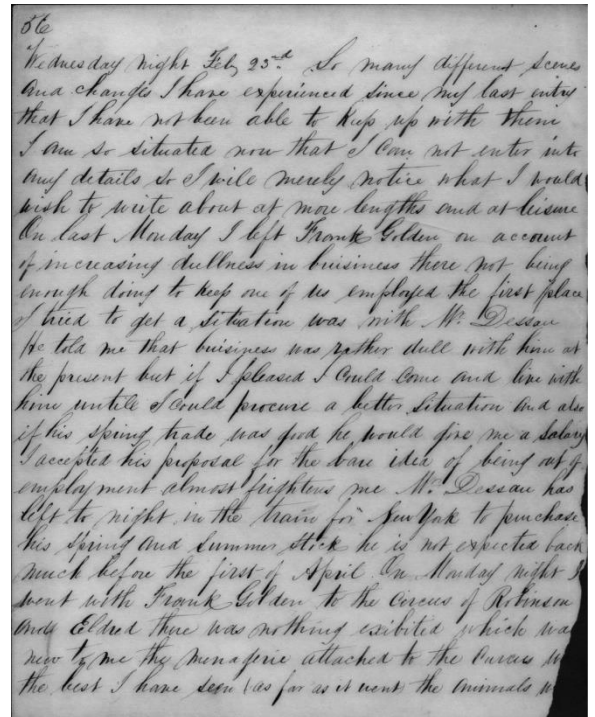 56
Wednesday night Feb 23rd. So many different scenes
and changes I have experienced since my last entry
that I have not been able to keep up with them
I am so situated now that I can not enter into
any details so I will merely notice what I would
wish to write about at more lengths and at leisure
On last Monday I left Frank Golden on account
of increasing dullness in buisiness there not being
enough doing to keep one of us employed the first place
I tried to get a situation was with Mr. Dessau
He told me that buisiness was rather dull with him at
the present but if I pleased I could come and live with
him untile I could procure a better situation and also
if his spring trade was good he would give me a salary
I accepted his proposal for the bare idea of being out of
employment almost frightens me Mr. Dessau has
left to night in the train for New York to purchase
his spring and summer stock he is not expected back
much before the first of April. On Monday night I
went with Frank Golden to the circus of Robinson
and Eldred there was nothing exibited which wa
new to me the menagerie attached to the circus w
the best I have seen (as far as it went) the animals w